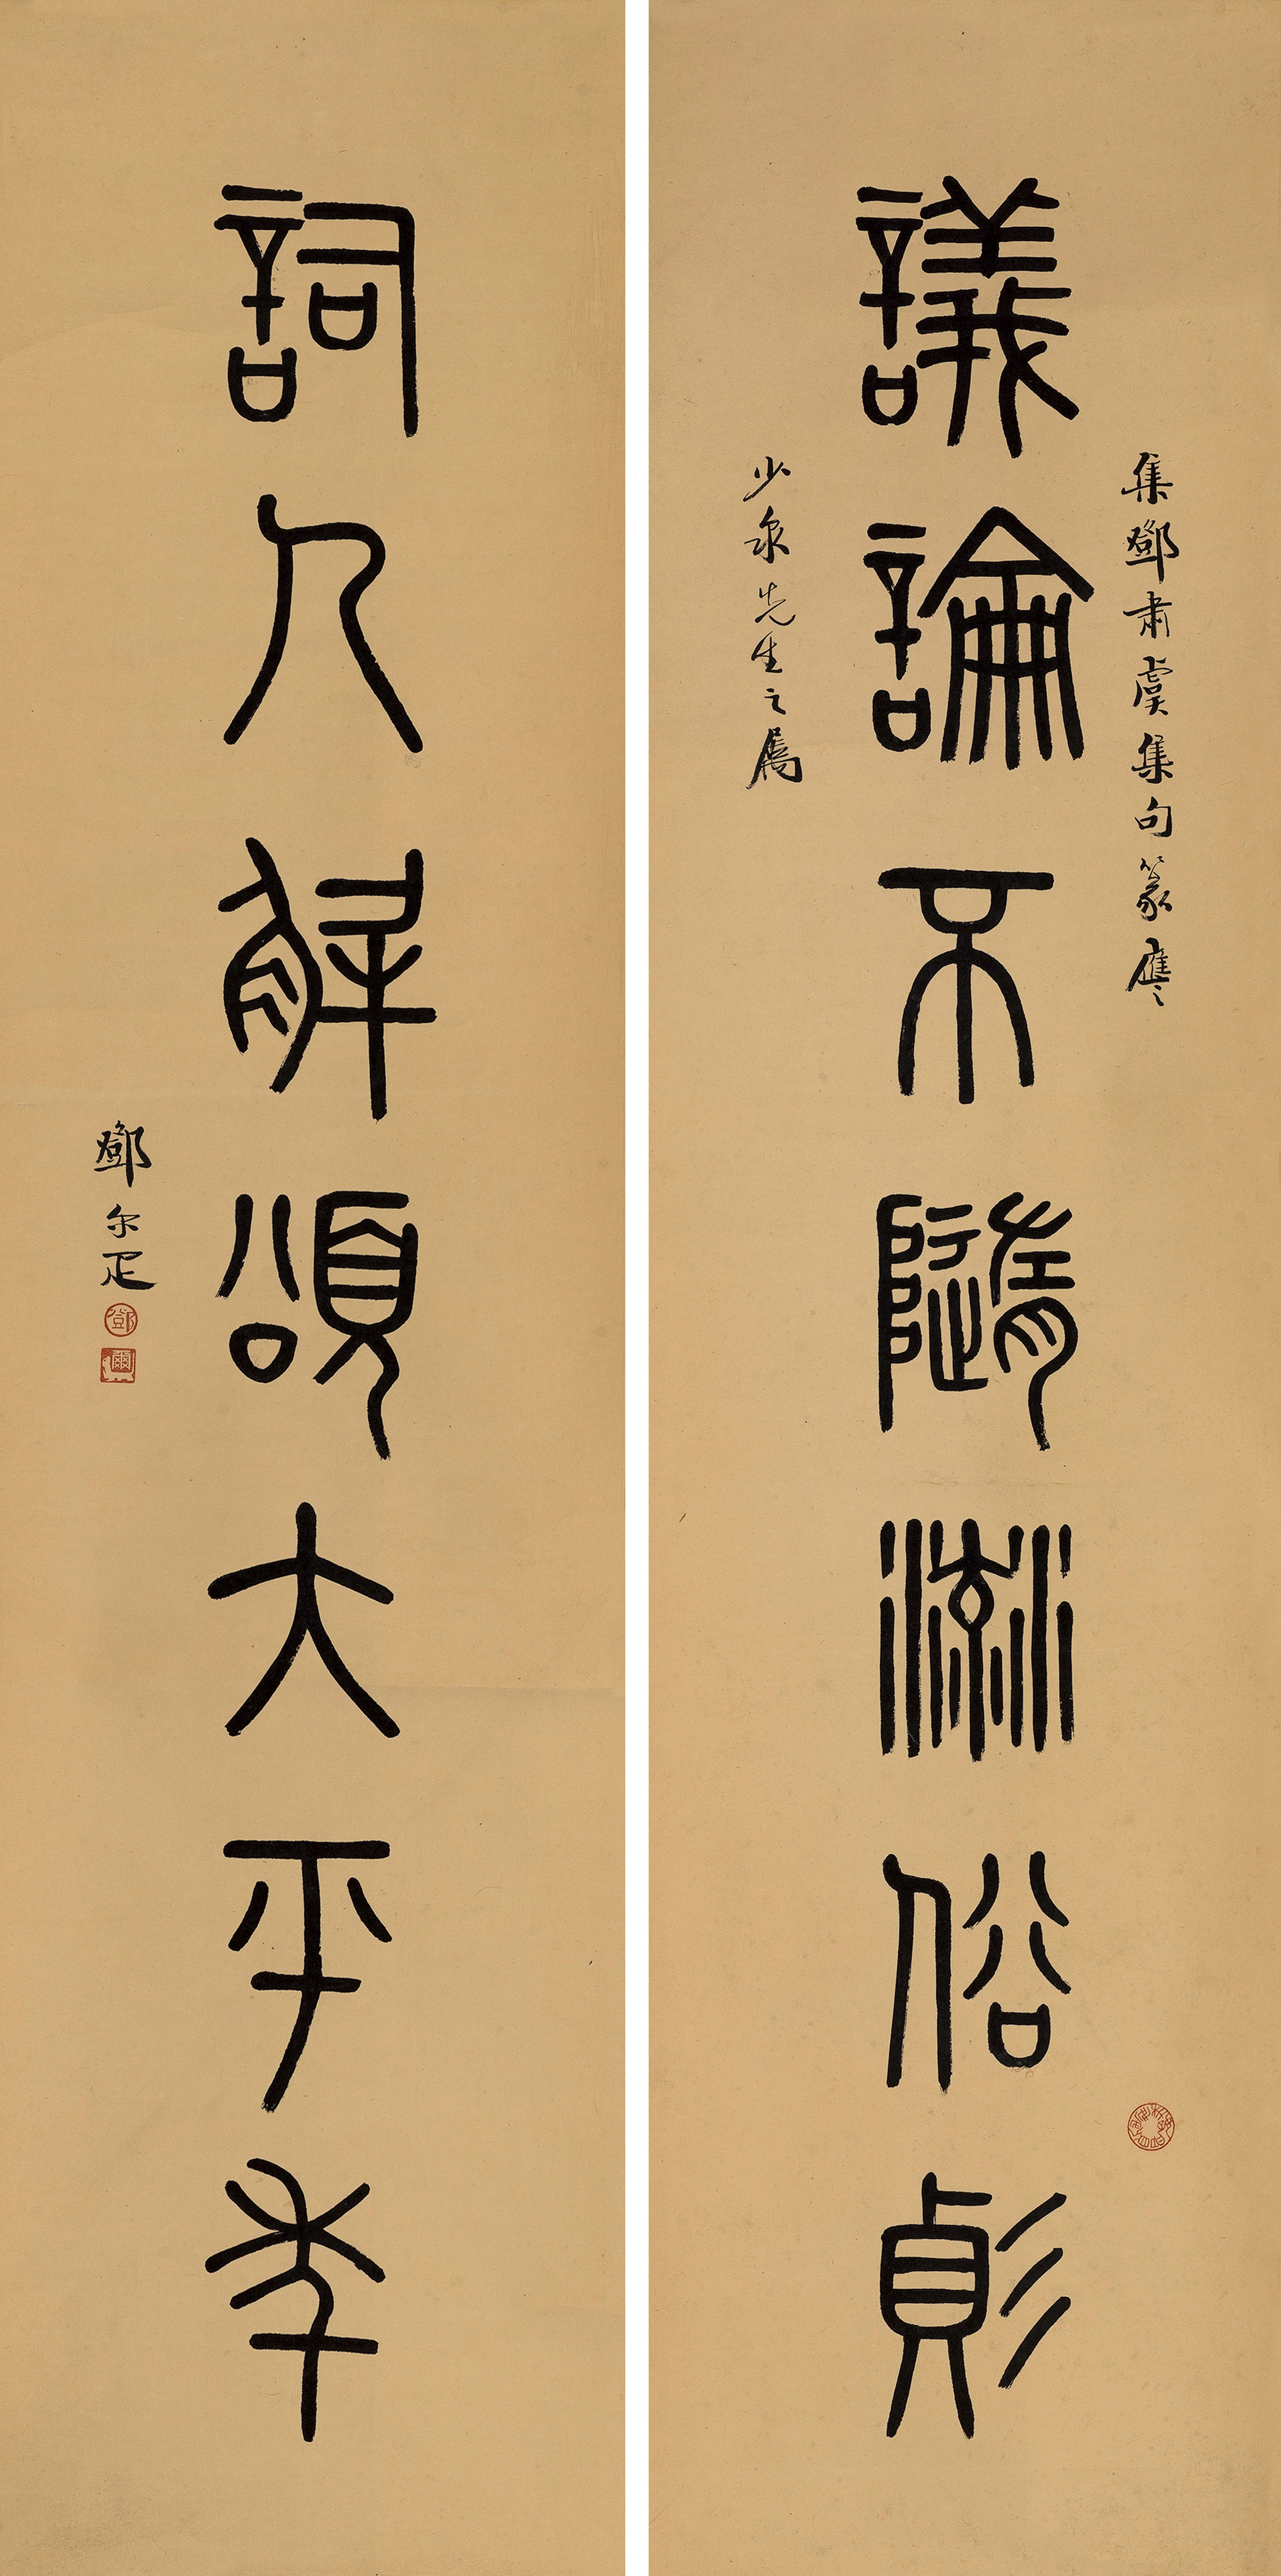 集鄧肅虞集句篆應
議論不隨流俗變
少泉先生之屬
詞人解頌大平年
鄧尔疋
鄧
爾